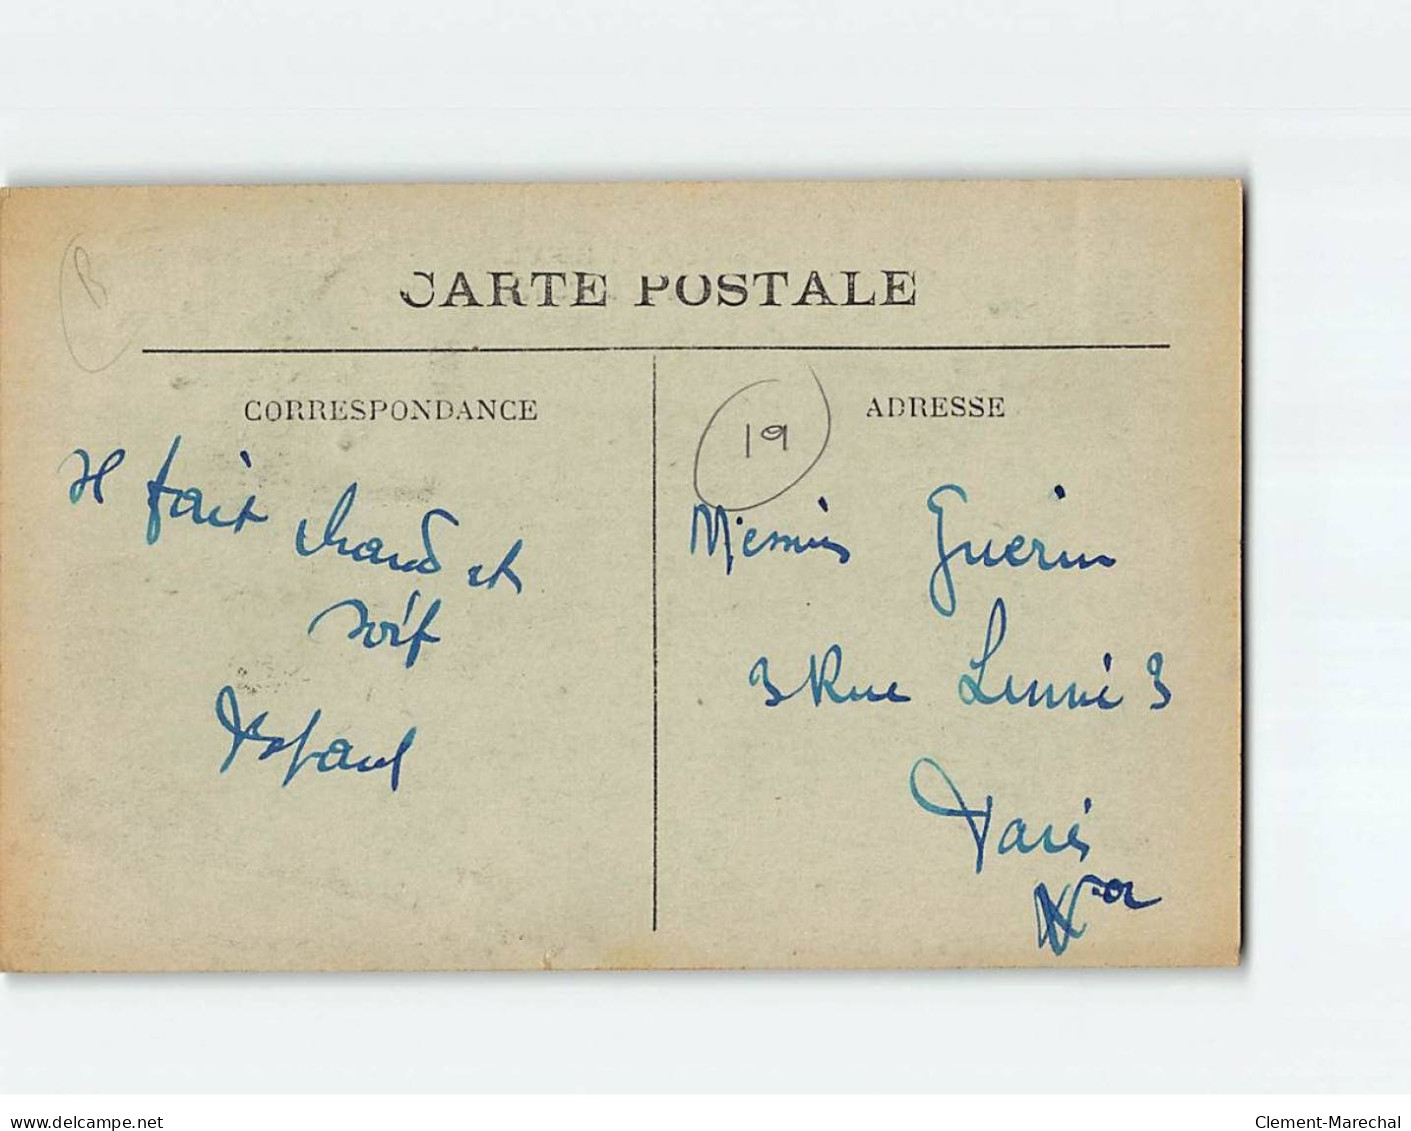 B
CARTE POSTALE
CORRESPONDANCE
ADRESSE
19
Il fait chaud et
soif
Messieurs Guerin
3 Rue 3
Paris
www.delcampe.net
Clement-Marechal